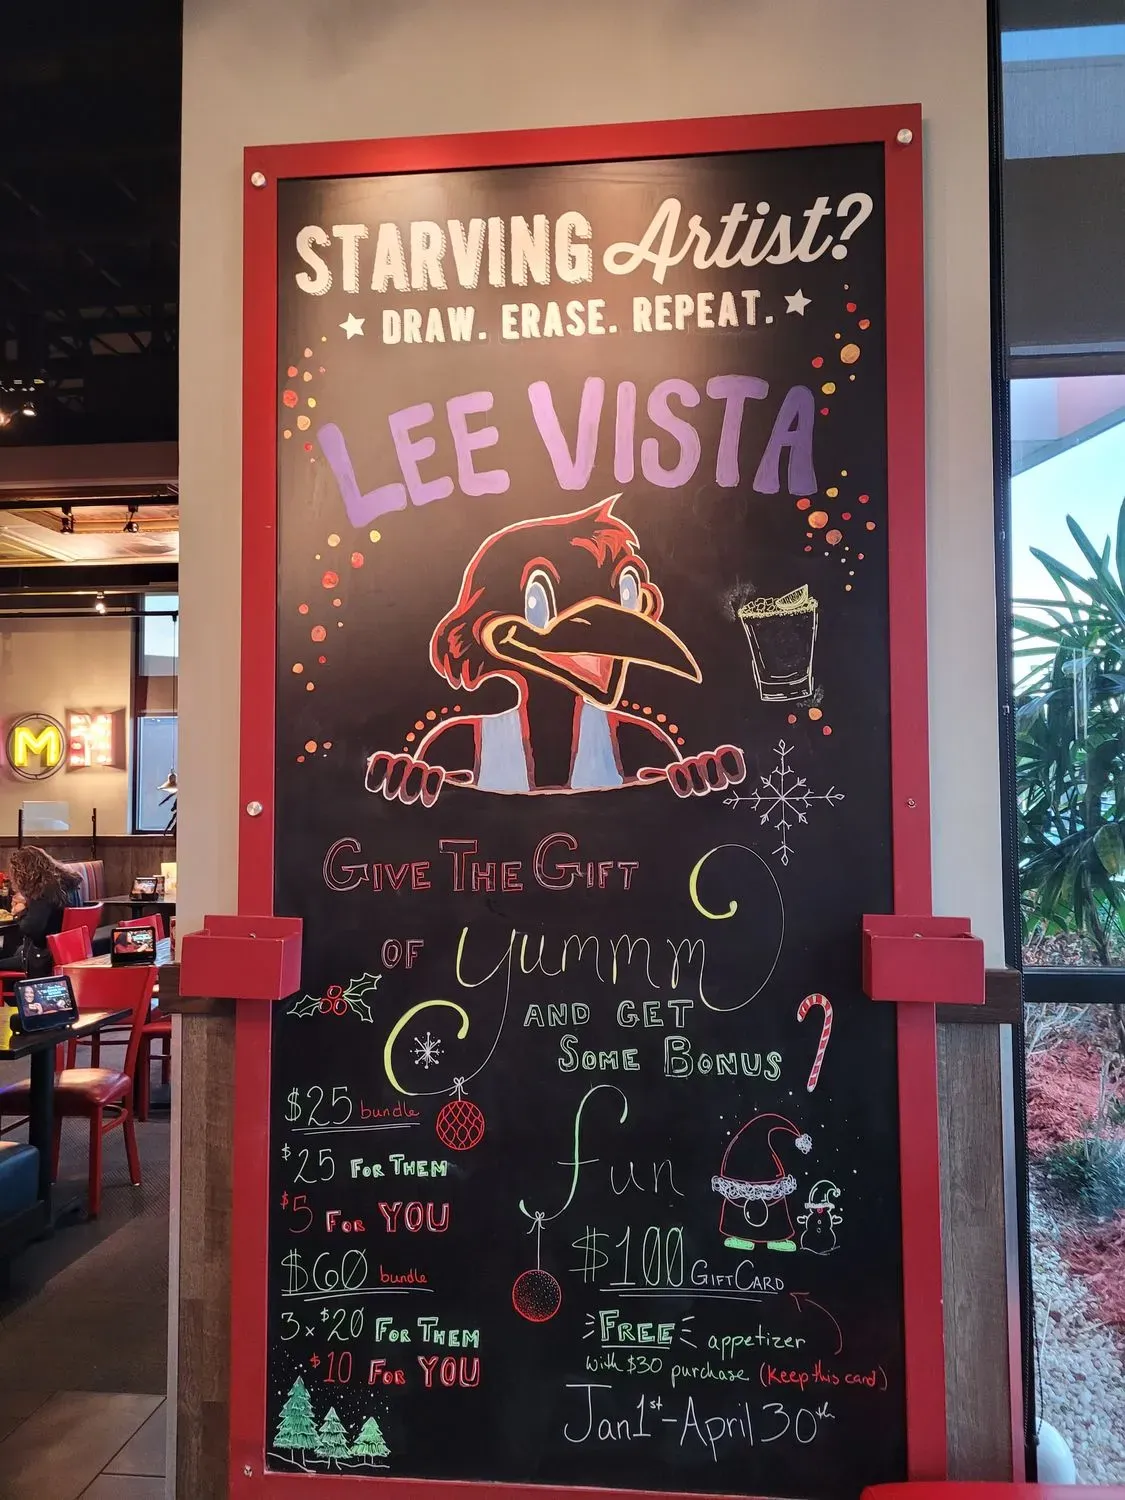 STARVING Artist?
★ DRAW. ERASE. REPEAT. ★
LEE VISTA
GIVE THE GIFT
OF yummm
AND GET
SOME BONUS
fun
$25 bundle
$25 FOR THEM
$5 FOR YOU
$60 bundle
3x $20 FOR THEM
$10 FOR YOU
$100 GIFTCARD
FREE appetizer
with $30 purchase (keep this card)
Jan 1st - April 30th
M
M